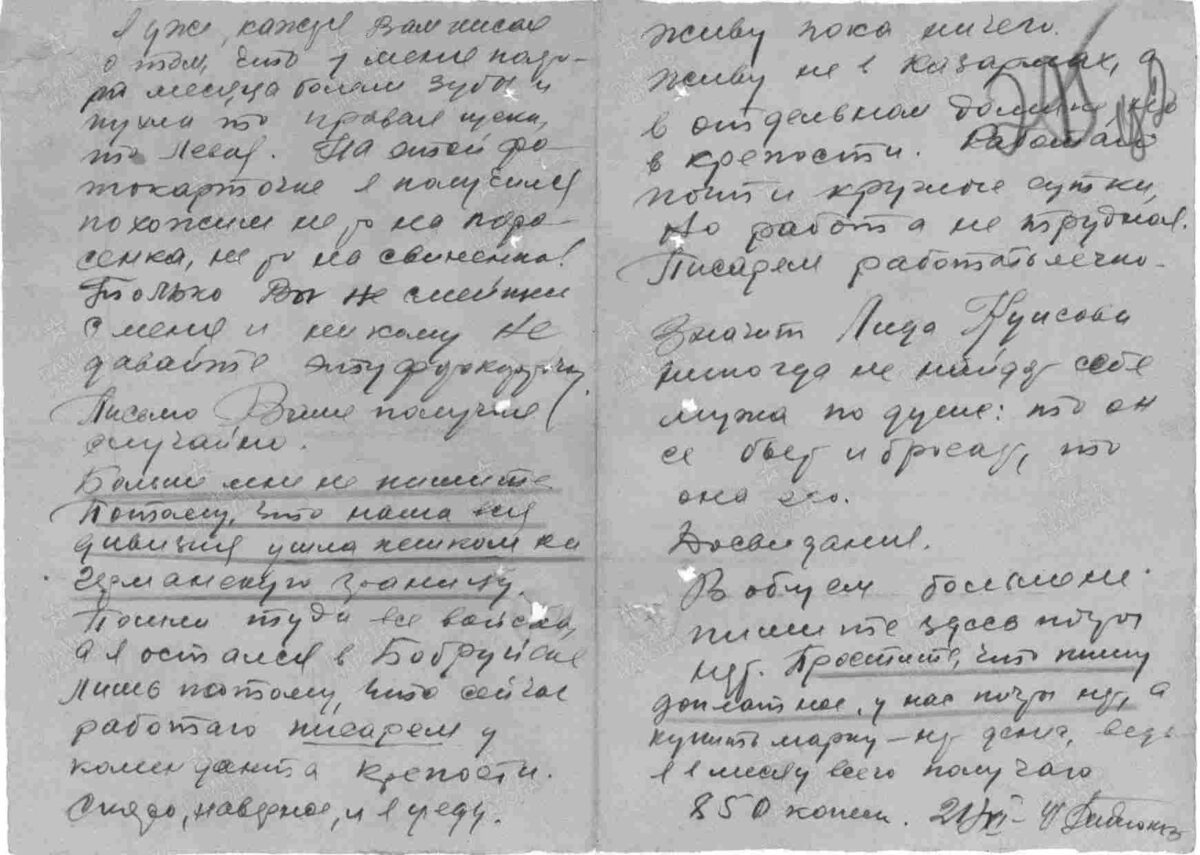 Я уже, кажется Вам писал
о том, что у меня полто-
ра месяца болели зубы и
пухла то правая щека,
то левая. На этой фо-
токарточке я получился
похожим не то на поро-
сенка, не то на свиненка!
Только Вы не смейтесь
с меня и никому не
давайте эту фотокарточку.
Письмо Ваше получил
случайно.
Больше мне не пишите
Потому, что наша вся
дивизия ушла пешком на
Германскую границу.
Пошли туда все войска,
а я остался в Бобруйске
лишь потому, что сейчас
работаю писарем у
коменданта крепости.
Скоро, наверное, и я уеду.
Живу пока ничего.
Живу не в казармах, а
в отдельном домике
в крепости. Работаю
почти круглые сутки,
Но работа не трудная.
Писарем работать легко.
Значит Лида
никогда не найдет себе
мужа по душе: то он
ее бьет и бросает, то
она его.
Досвидания.
В общем больше мне
пишите здесь почты
нет. Простите, что пишу
доплатное, у нас почты нет, а
купить марку – нет денег, ведь
я в месяц всего получаю
850 копеек. 21/XI–